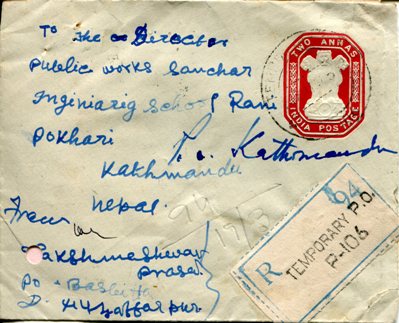 To The Director
Public Works Sanchar
Inginiarig School Rani
Pokhari
Kathmandu
Nepal.
P.O. Kathmandu
TWO ANNAS
INDIA POSTAGE
From
Lakshmeshwar
Prasad
PO
D. Muzaffarpur
R
94
TEMPORARY P.O.
R-106